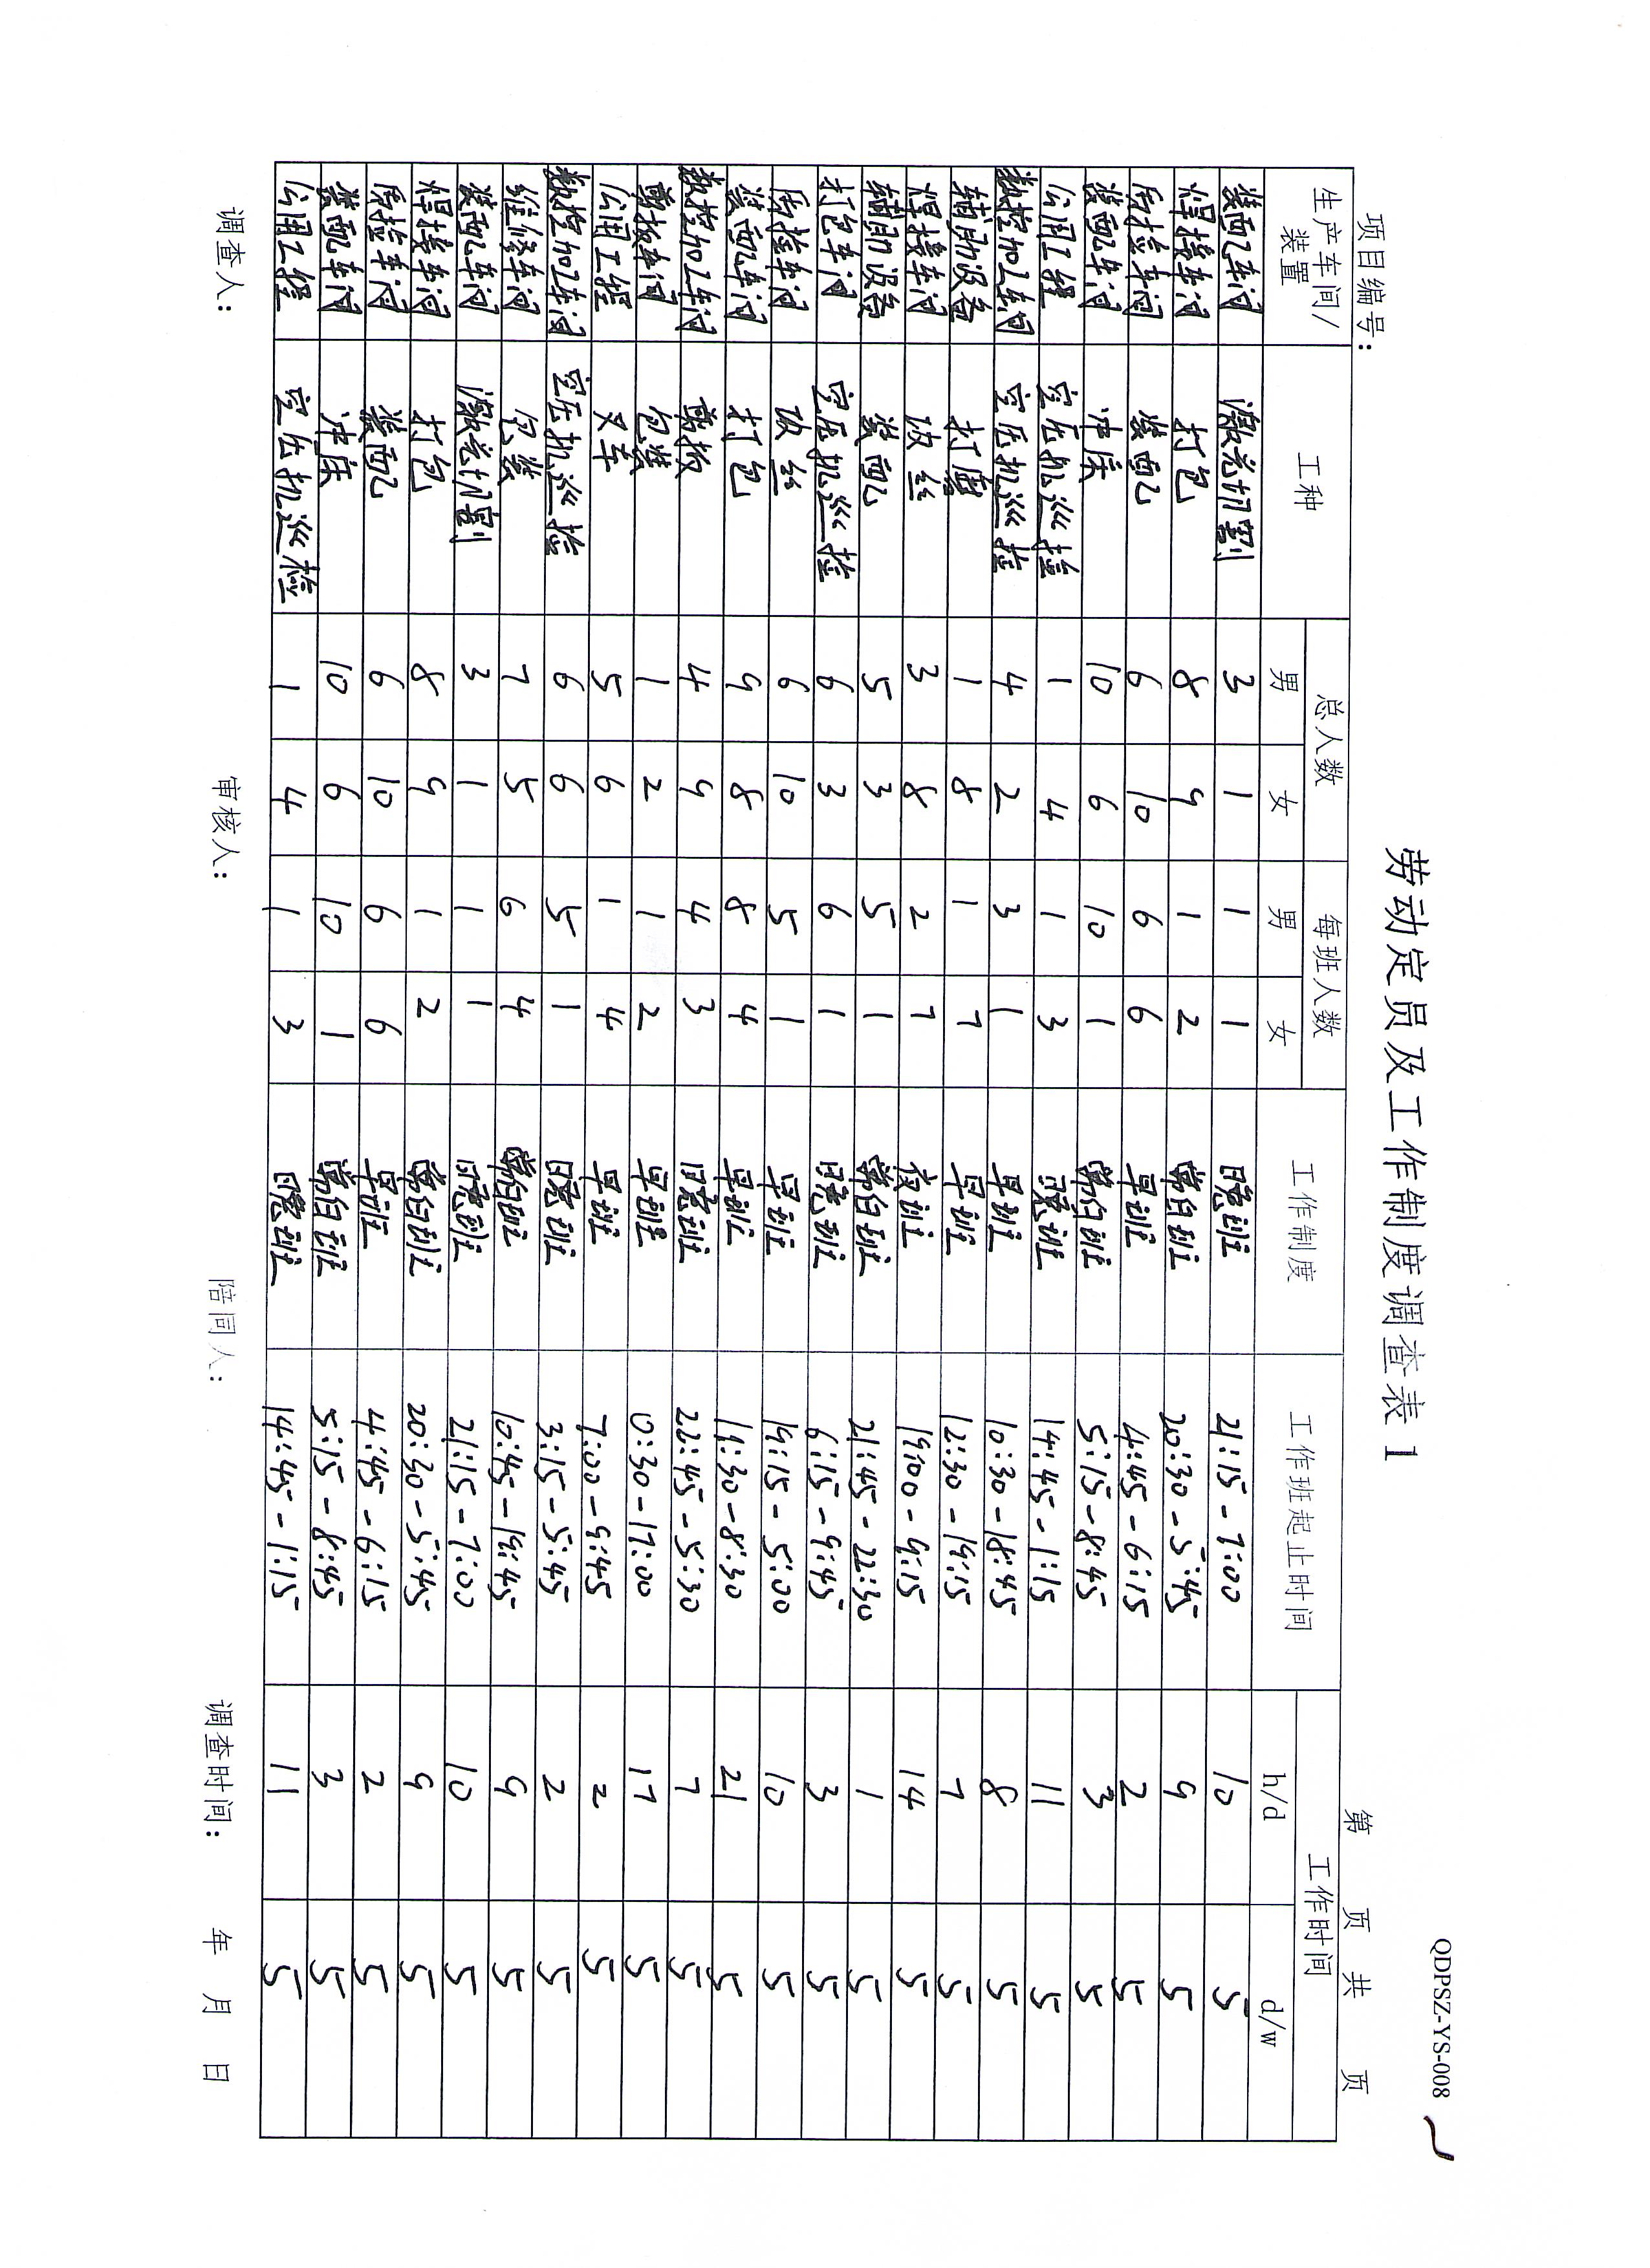 QDPSZ-YS-008
劳动定员及工作制度调查表1
项目编号：
第 页 共 页
生产车间/装置 工种 总人数 每班人数 工作制度 工作班起止时间 工作时间
男 女 男 女 h/d d/w
装配车间 激光切割 3 1 1 1 晚班 21:15-7:00 10 5
焊接车间 打包 8 9 1 2 常白班 20:30-5:45 9 5
质检车间 装配 6 10 6 6 早班 4:45-6:15 2 5
装配车间 冲床 10 6 10 1 常白班 5:15-8:45 3 5
公用工程 空压机巡检 1 4 1 3 晚班 14:45-1:15 11 5
数控加工车间 空压机巡检 4 2 3 1 早班 10:30-18:45 8 5
辅助设备 打磨 1 8 1 7 早班 12:30-19:15 7 5
焊接车间 攻丝 3 8 2 7 夜班 19:00-9:15 14 5
辅助设备 装配 5 3 5 1 常白班 21:45-22:30 1 5
打包车间 空压机巡检 6 3 6 1 晚班 6:15-9:45 3 5
质检车间 攻丝 6 10 5 1 早班 19:15-5:00 10 5
装配车间 打包 9 8 8 4 早班 11:30-8:30 21 5
数控加工车间 剪板 4 9 4 3 晚班 22:45-5:30 7 5
剪板车间 包装 1 2 1 2 早班 0:30-17:00 17 5
公用工程 叉车 5 6 1 4 早班 7:00-9:45 2 5
数控加工车间 空压机巡检 6 6 5 1 晚班 3:15-5:45 2 5
维修车间 包装 7 5 6 4 常白班 10:45-19:45 9 5
装配车间 激光切割 3 1 1 1 晚班 21:15-7:00 10 5
焊接车间 打包 8 9 1 2 常白班 20:30-5:45 9 5
质检车间 装配 6 10 6 6 早班 4:45-6:15 2 5
装配车间 冲床 10 6 10 1 常白班 5:15-8:45 3 5
公用工程 空压机巡检 1 4 1 3 晚班 14:45-1:15 11 5
调查人： 审核人： 陪同人： 调查时间： 年 月 日